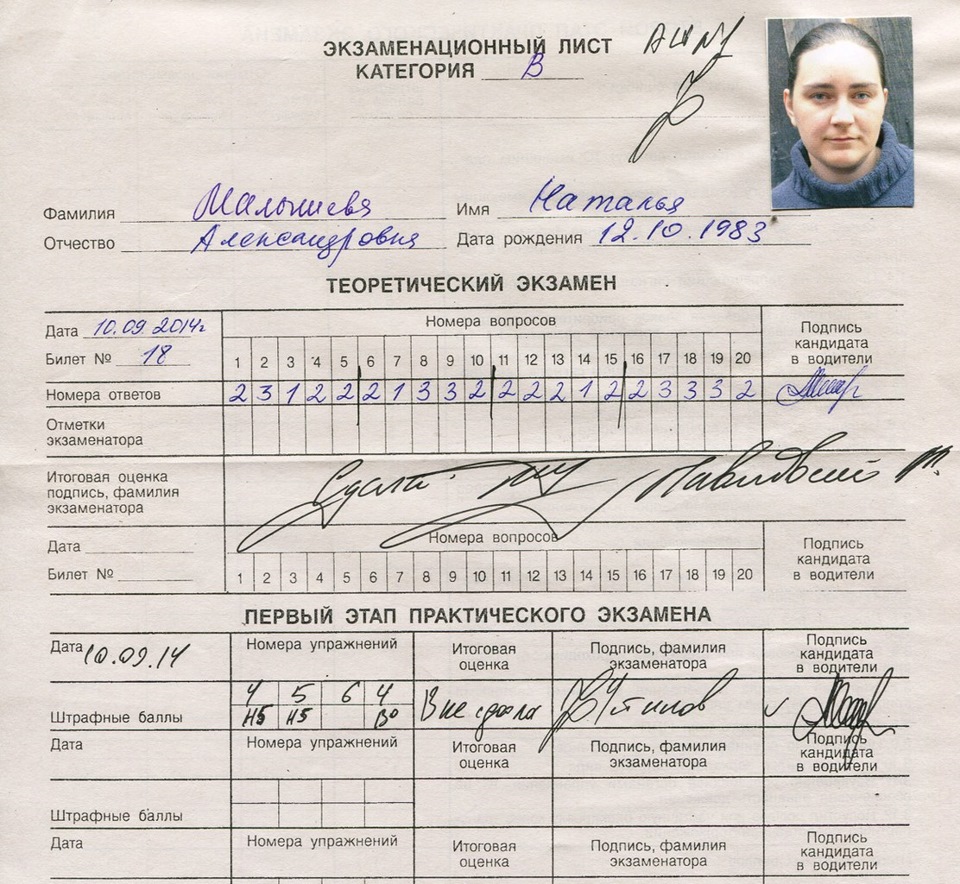 ЭКЗАМЕНАЦИОННЫЙ ЛИСТ
КАТЕГОРИЯ В
Фамилия Малышева Имя Наталья
Отчество Александровна Дата рождения 12.10.1983
ТЕОРЕТИЧЕСКИЙ ЭКЗАМЕН
Дата 10.09.2014г Номера вопросов Подпись кандидата в водители
Билет № 18 1 2 3 4 5 6 7 8 9 10 11 12 13 14 15 16 17 18 19 20
Номера ответов 2 3 1 2 2 2 1 3 3 2 2 2 2 1 2 2 3 3 3 2
Отметки экзаменатора
Итоговая оценка подпись, фамилия экзаменатора Сдала
Дата Номера вопросов Подпись кандидата в водители
Билет № 1 2 3 4 5 6 7 8 9 10 11 12 13 14 15 16 17 18 19 20
ПЕРВЫЙ ЭТАП ПРАКТИЧЕСКОГО ЭКЗАМЕНА
Дата 10.09.14 Номера упражнений Итоговая оценка Подпись, фамилия экзаменатора Подпись кандидата в водители
4 5 6 4
Штрафные баллы Н5 Н5 не сдала
Дата Номера упражнений Итоговая оценка Подпись, фамилия экзаменатора Подпись кандидата в водители
Штрафные баллы
Дата Номера упражнений Итоговая оценка Подпись, фамилия экзаменатора Подпись кандидата в водители